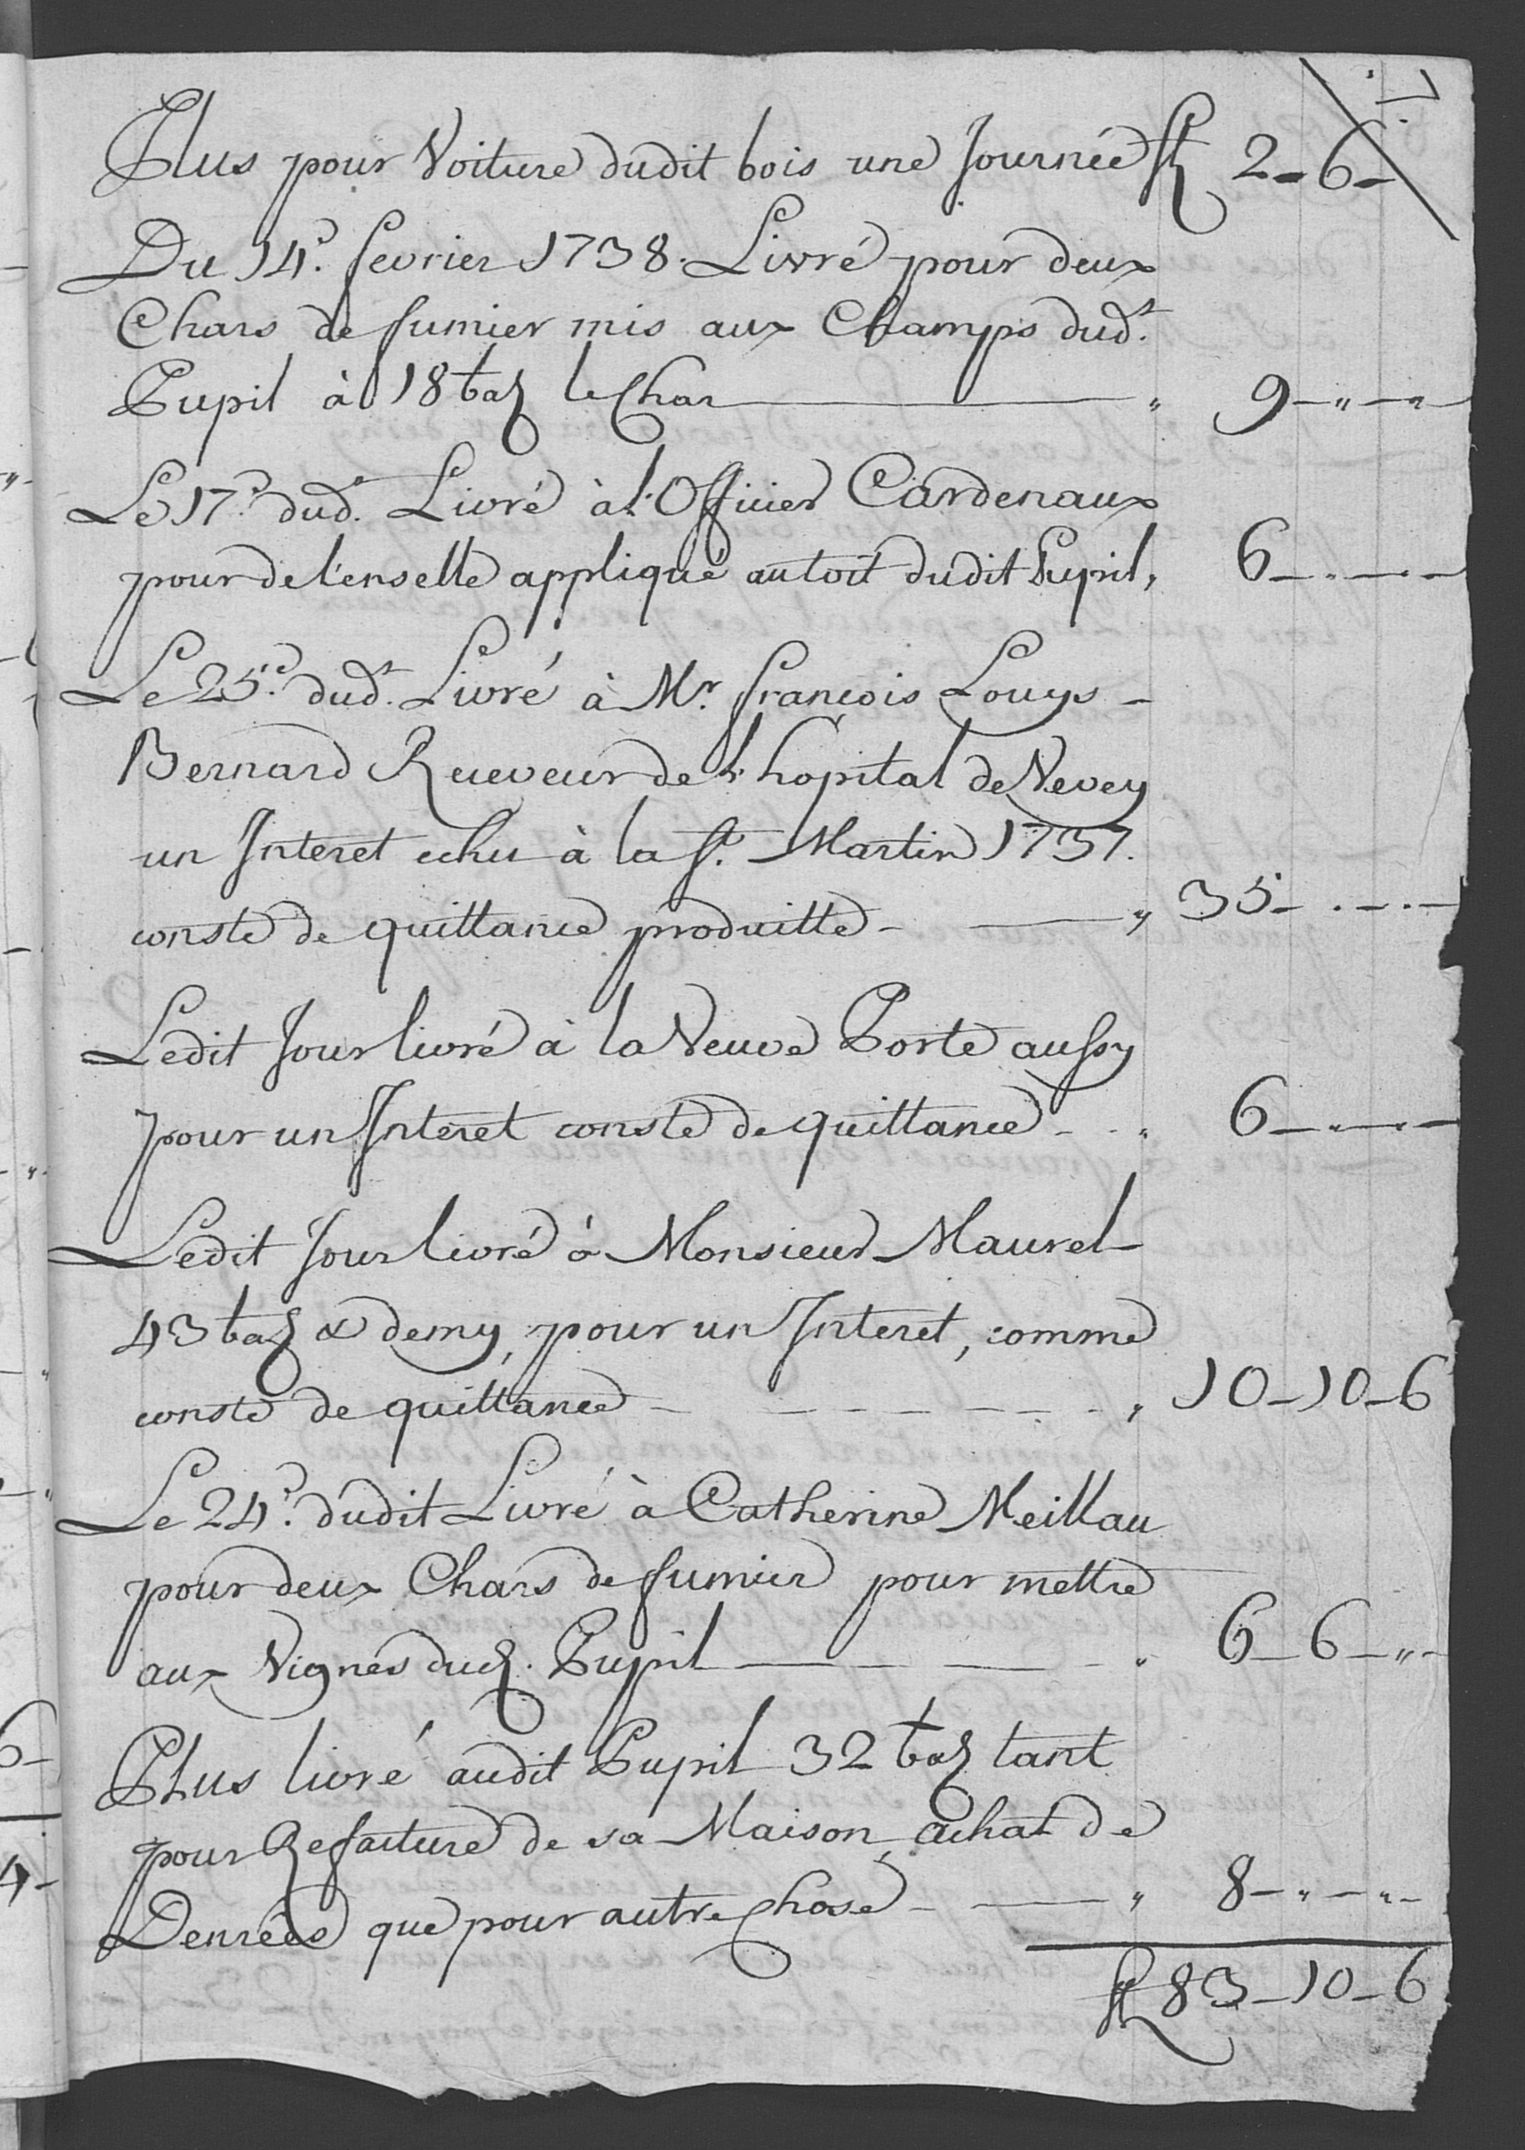 7.
Plus pour Voiture dudit bois une Journée fl 2-6-
Du 14e. fevrier 1738. Livré pour deux
Chars de fumier mis aux Champs dudt.
Pupil à 18 baz le Char " 9-"-"
Le 17e. dudt. Livré à l'Officier Cardenaux
pour de l'enselle appliqué au toit dudit Pupil, 6-"-"-
Le 25e. dudt. Livré à Mr. francois Louys -
Bernard Receveur de l'hopital de Vevey
un Interet echu à la St. Martin 1737.
conste de quittance produitte - " 35-"-"-
Ledit Jour livré à la Veuve Porte aussy
pour un Interet conste de quittance - " 6-"-"-
Ledit Jour livré à Monsieur Maurel
43 baz & demy, pour un Interet, comme
conste de quittance - " 10-10-6
Le 24e. dudit Livré à Catherine Meillau
pour deux Chars de fumier pour mettre
aux Vignes dud. Pupil - " 6-6-"-
Plus livré audit Pupil 32 baz tant
pour Refaiture de sa Maison, achat de
Denrées que pour autre Chose - " 8-"-"-
fl 83-10-6